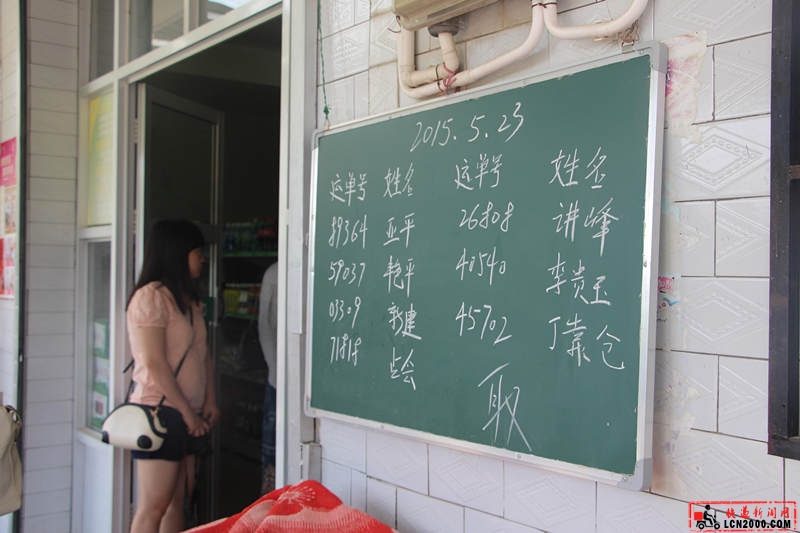 2015.5.23
运单号 姓名 运单号 姓名
89364 亚平 26808 讲峰
59037 艳平 40540 李贵玉
03309 新建 45702 丁靠仓
71818 占会
取
快递新闻网
LCN2000.COM